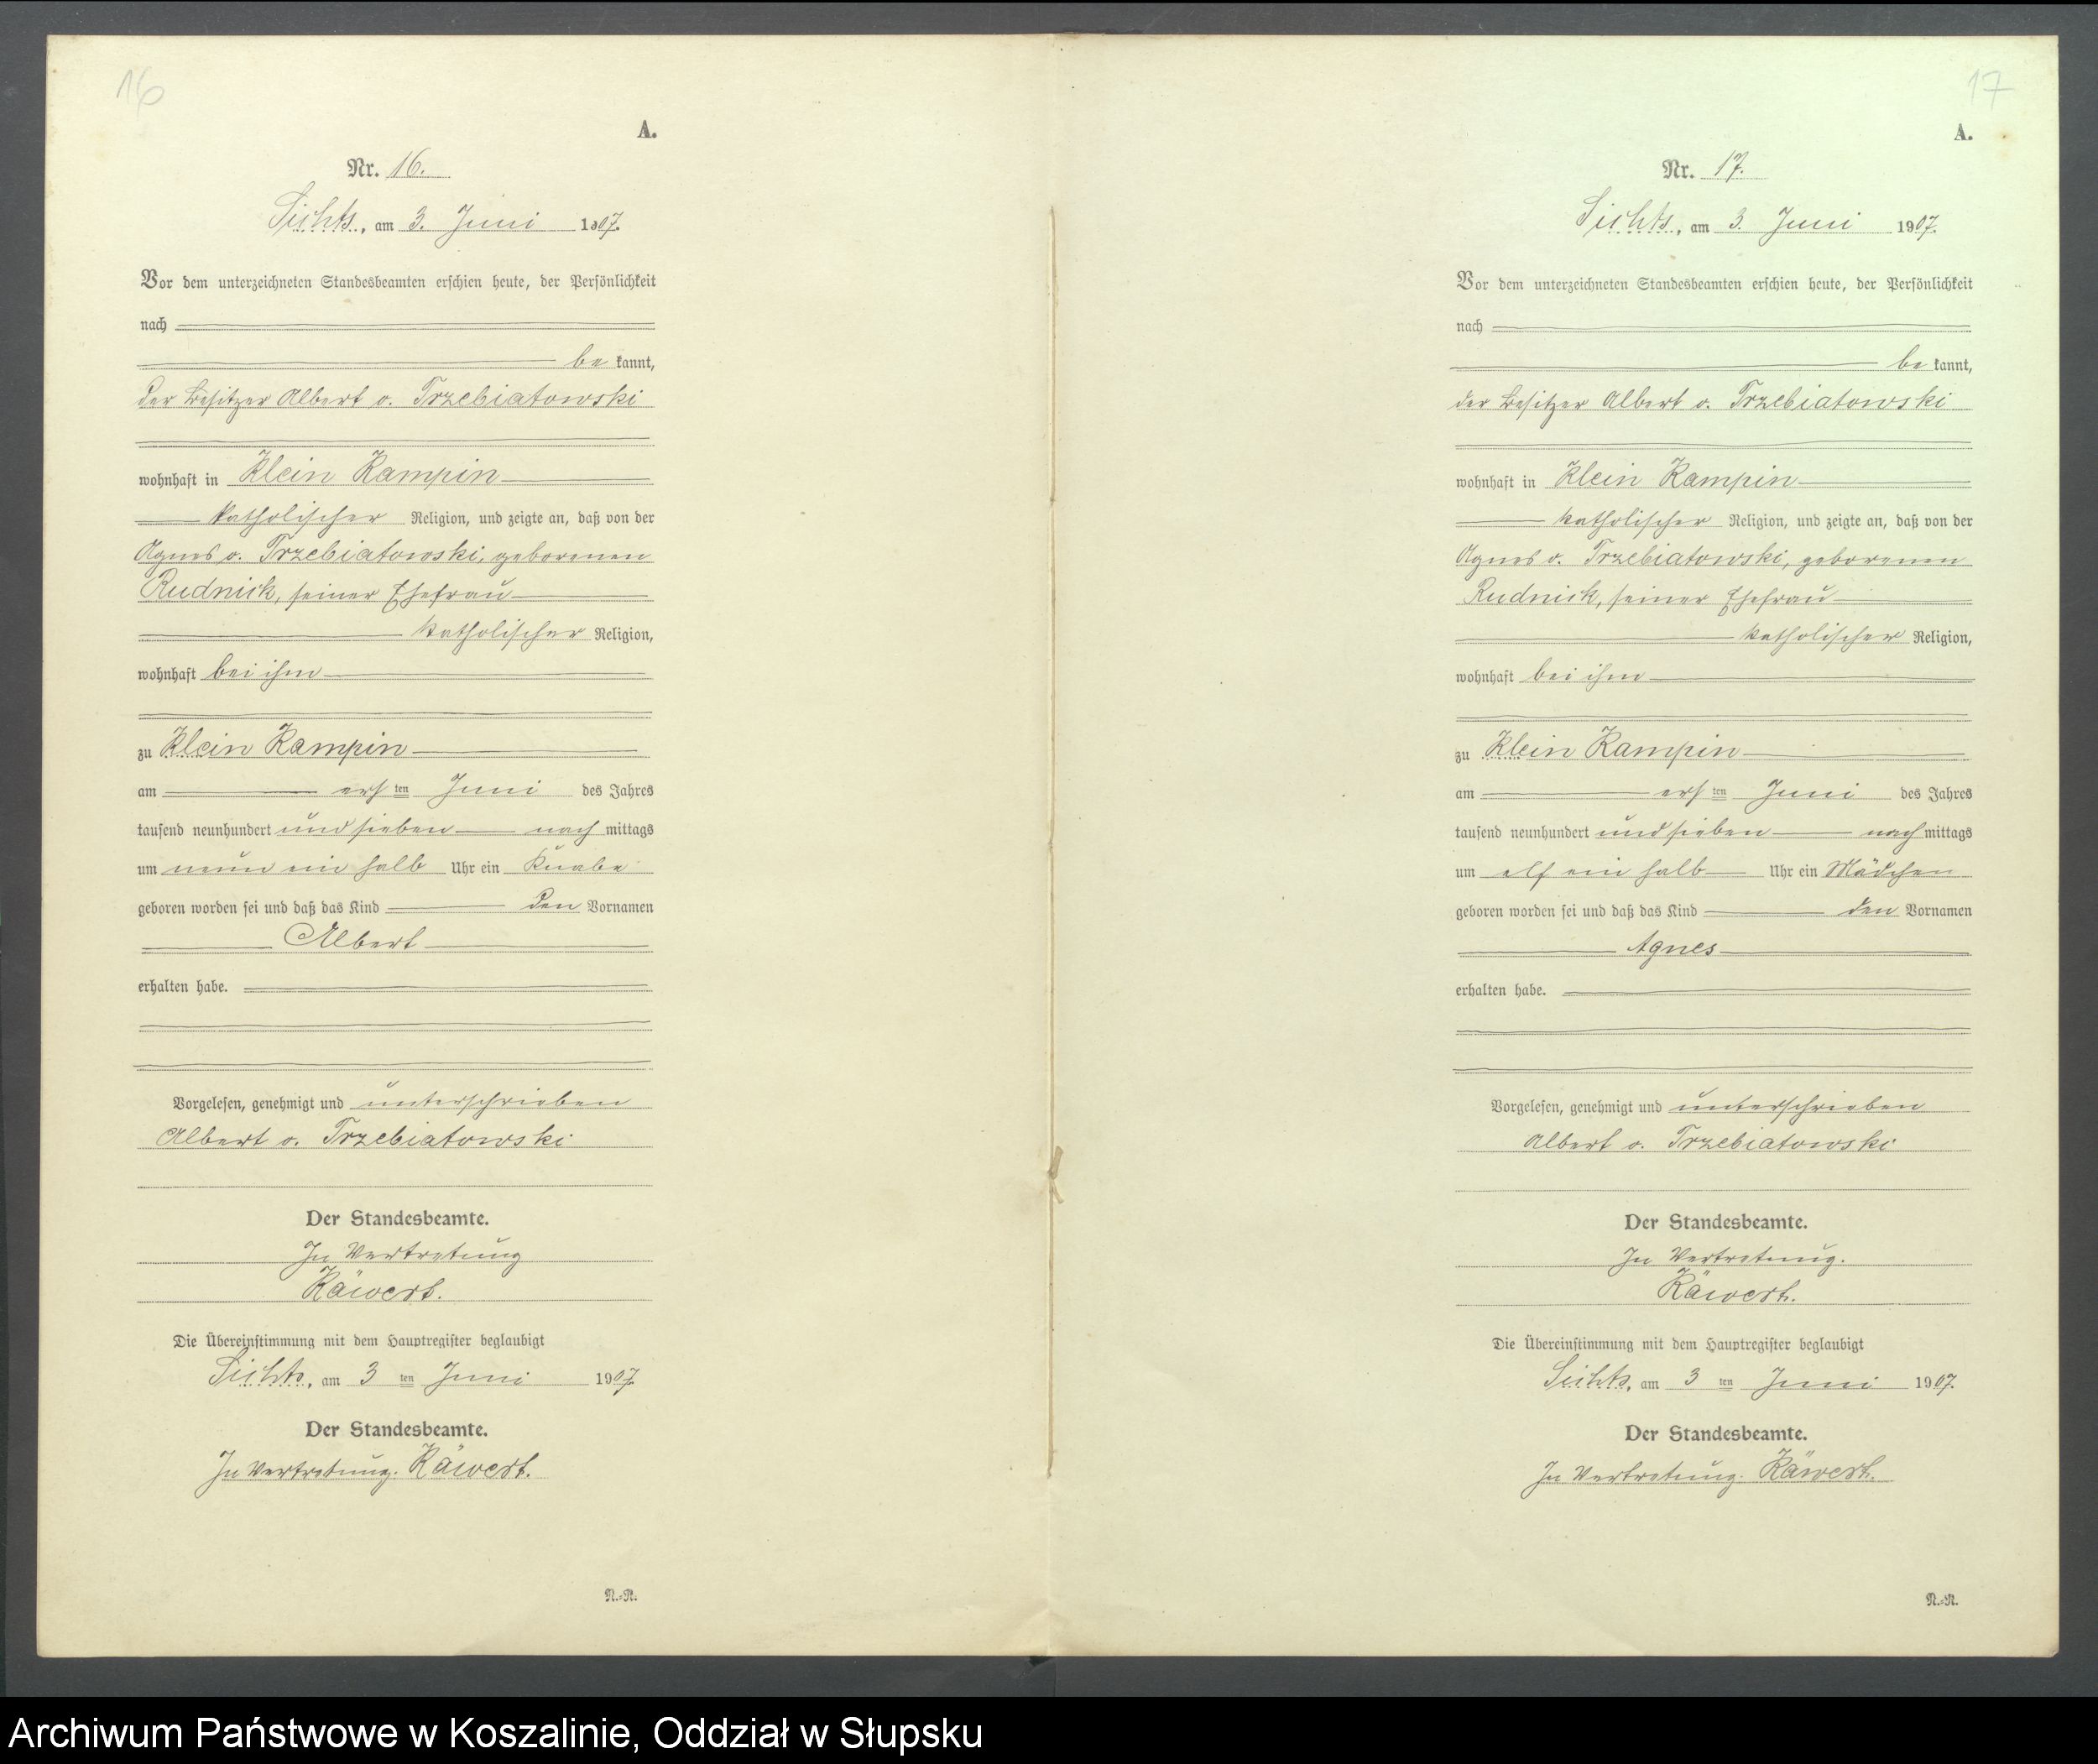 16
A.
Nr. 16.
Sichts, am 3. Juni 1907.
Vor dem unterzeichneten Standesbeamten erschien heute, der Persönlichkeit
nach
be kannt,
der Besitzer Albert v. Trzebiatowski
wohnhaft in Klein Rampin
katholischer Religion, und zeigte an, daß von der
Agnes v. Trzebiatowski, geborenen
Rudnick, seiner Ehefrau
katholischer Religion,
wohnhaft bei ihm
zu Klein Rampin
am ersten Juni des Jahres
tausend neunhundert und sieben nach mittags
um neun ein halb Uhr ein Knabe
geboren worden sei und daß das Kind den Vornamen
Albert
erhalten habe.
Vorgelesen, genehmigt und unterschrieben
Albert v. Trzebiatowski
Der Standesbeamte.
In Vertretung
Räwert.
Die Übereinstimmung mit dem Hauptregister beglaubigt
Sichts, am 3 ten Juni 1907.
Der Standesbeamte.
In Vertretung. Räwert.
N.-R.
17
A.
Nr. 17.
Sichts, am 3. Juni 1907.
Vor dem unterzeichneten Standesbeamten erschien heute, der Persönlichkeit
nach
be kannt,
der Besitzer Albert v. Trzebiatowski
wohnhaft in Klein Rampin
katholischer Religion, und zeigte an, daß von der
Agnes v. Trzebiatowski, geborenen
Rudnick, seiner Ehefrau
katholischer Religion,
wohnhaft bei ihm
zu Klein Rampin
am ersten Juni des Jahres
tausend neunhundert und sieben nach mittags
um elf ein halb Uhr ein Mädchen
geboren worden sei und daß das Kind den Vornamen
Agnes
erhalten habe.
Vorgelesen, genehmigt und unterschrieben
Albert v. Trzebiatowski
Der Standesbeamte.
In Vertretung.
Räwert.
Die Übereinstimmung mit dem Hauptregister beglaubigt
Sichts, am 3 ten Juni 1907.
Der Standesbeamte.
In Vertretung. Räwert.
N.-R.
Archiwum Państwowe w Koszalinie, Oddział w Słupsku